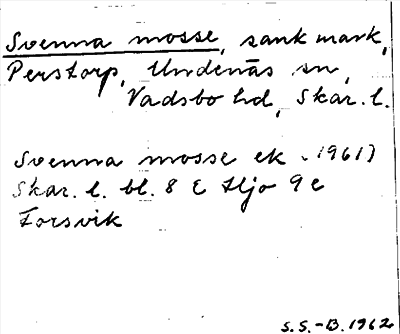 Svenna mosse, sank mark,
Perstorp, Undenäs sn,
Vadsbo hd, Skar. l.
Svenna mosse ek. 1961)
Skar. l. bl. 8 E Hjo 9 e
Forsvik
S. S.-B. 1962